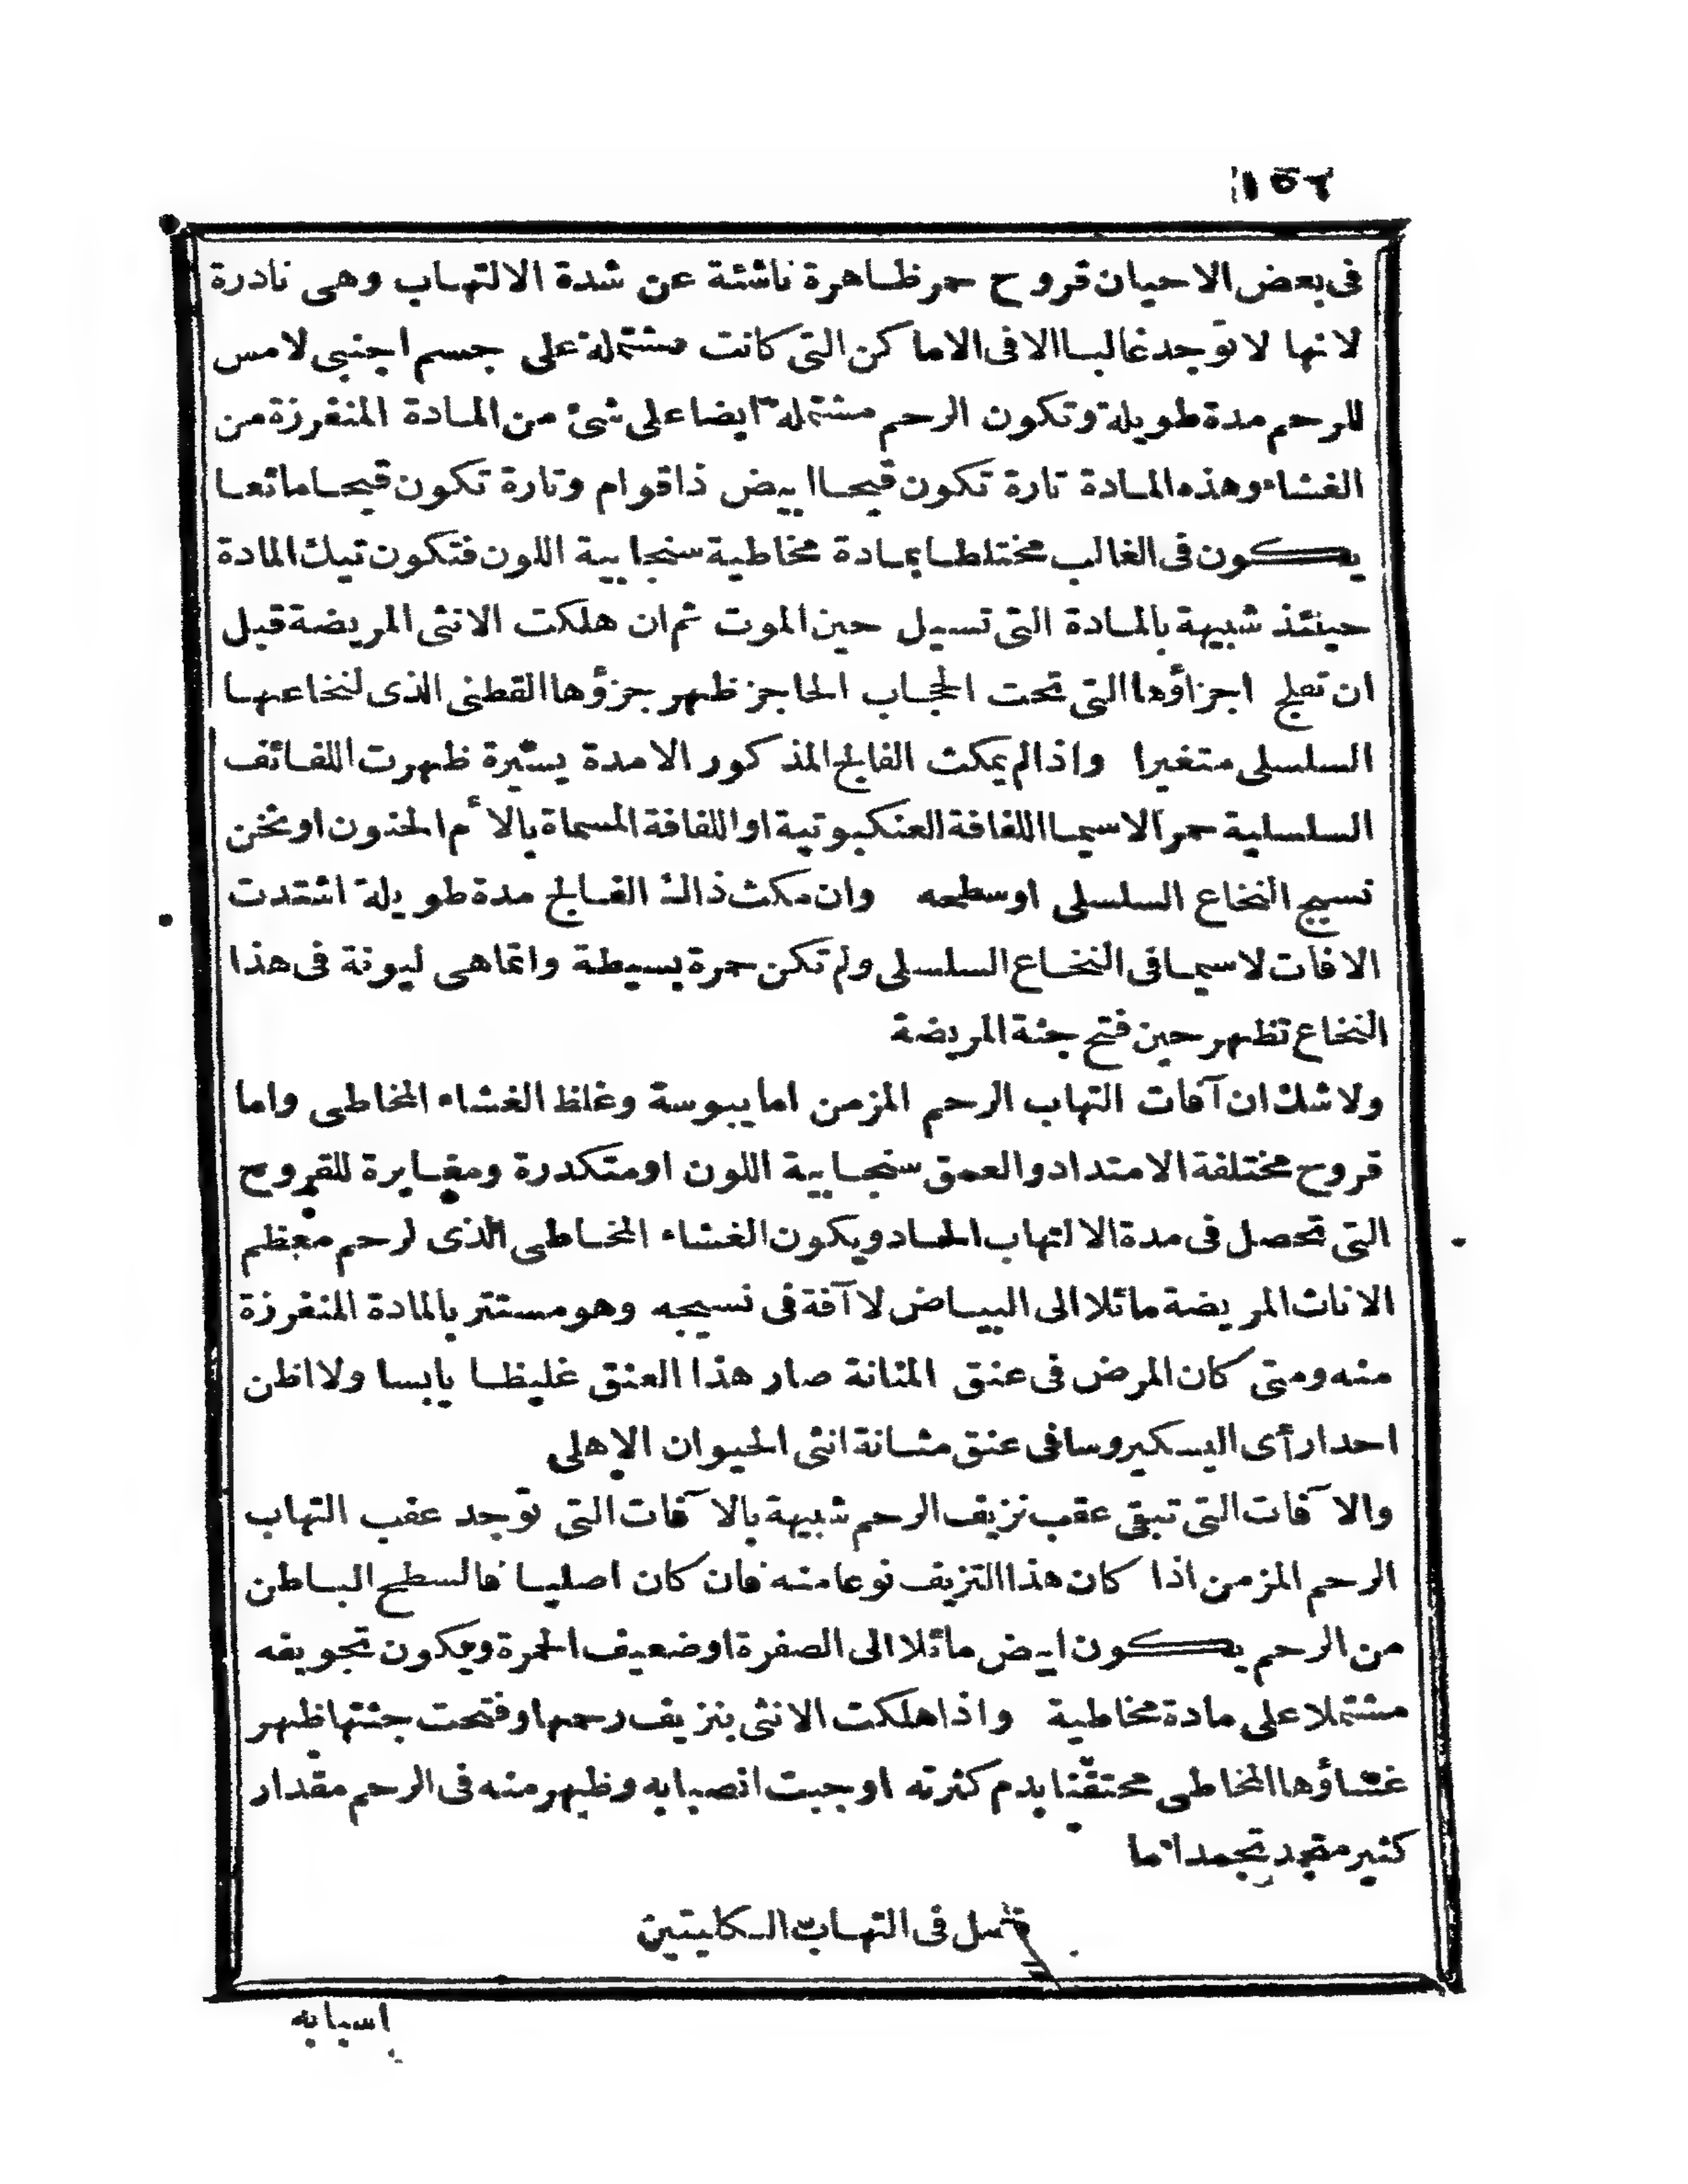 ١٥٢
فى بعض الاحيان قروح حمر ظاهرة ناشئة عن شدة الالتهاب وهى نادرة
لانها لا توجد غالبا الا فى الاماكن التى كانت مشتملة على جسم اجنبى لامس
للرحم مدة طويلة وتكون الرحم مشتملة ايضا على شئ من المادة المنفرزة من
الغشاء وهذه المادة تارة تكون قيحا ابيض ذا قوام وتارة تكون قيحا مائعا
يكون فى الغالب مختلطا بمادة مخاطية سنجابية اللون فتكون تيك المادة
حينئذ شبيهة بالمادة التى تسيل حين الموت ثم ان هلكت الانثى المريضة قبل
ان تفلج اجزاؤها التى تحت الحجاب الحاجز ظهر جزؤها القطنى الذى لنخاعها
السلسلى متغيرا واذا لم يمكث الفالج المذكور الا مدة يسيرة ظهرت اللفائف
السلسلية حمرا لاسيما اللفافة العنكبوتية او اللفافة المسماة بالأم الحنون او ثخن
نسيج النخاع السلسلى او سطحه وان مكث ذالك الفالج مدة طويلة اشتدت
الافات لاسيما فى النخاع السلسلى ولم تكن حمرة بسيطة وانما هى ليونة فى هذا
النخاع تظهر حين فتح جثة المريضة
ولا شك ان آفات التهاب الرحم المزمن اما يبوسة وغلظ الغشاء المخاطى واما
قروح مختلفة الامتداد والعمق سنجابية اللون او متكدرة ومغايرة للقروح
التى تحصل فى مدة الالتهاب الحاد ويكون الغشاء المخاطى الذى لرحم معظم
الاناث المريضة مائلا الى البياض لا آفة فى نسيجه وهو مستتر بالمادة المنفرزة
منه ومتى كان المرض فى عنق المثانة صار هذا العنق غليظا يابسا ولا اظن
احدا رأى اليسكيروسا فى عنق مثانة انثى الحيوان الاهلى
والآفات التى تبقى عقب نزيف الرحم شبيهة بالآفات التى توجد عقب التهاب
الرحم المزمن اذا كان هذا النزيف نوعا منه فان كان اصليا فالسطح الباطن
من الرحم يكون ابيض مائلا الى الصفرة او ضعيف الحمرة ويكون تجويفه
مشتملا على مادة مخاطية واذا هلكت الانثى بنزيف رحمها وفتحت جثتها ظهر
غشاؤها المخاطى محتقنا بدم كثرته اوجبت انصبابه وظهر منه فى الرحم مقدار
كثير متجمد تجمدا ما
فصل فى التهاب الكليتين
اسبابه